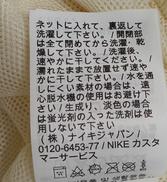 ネットに入れて、裏返して
洗濯して下さい。/ 開閉部
は全て閉めてから洗濯・乾
燥して下さい。/ 洗濯後、
速やかに干してください。
濡れたままで放置せず速や
かに干して下さい。/ 水を通
しにくい素材の場合は、遠
心脱水機の使用はお避け下
さい / 生成り、淡色の場合
は蛍光剤の入った洗剤は使
用しないで下さい
( 株 ) ナイキジャパン /
0120-6453-77 / NIKE カスタ
マーサービス